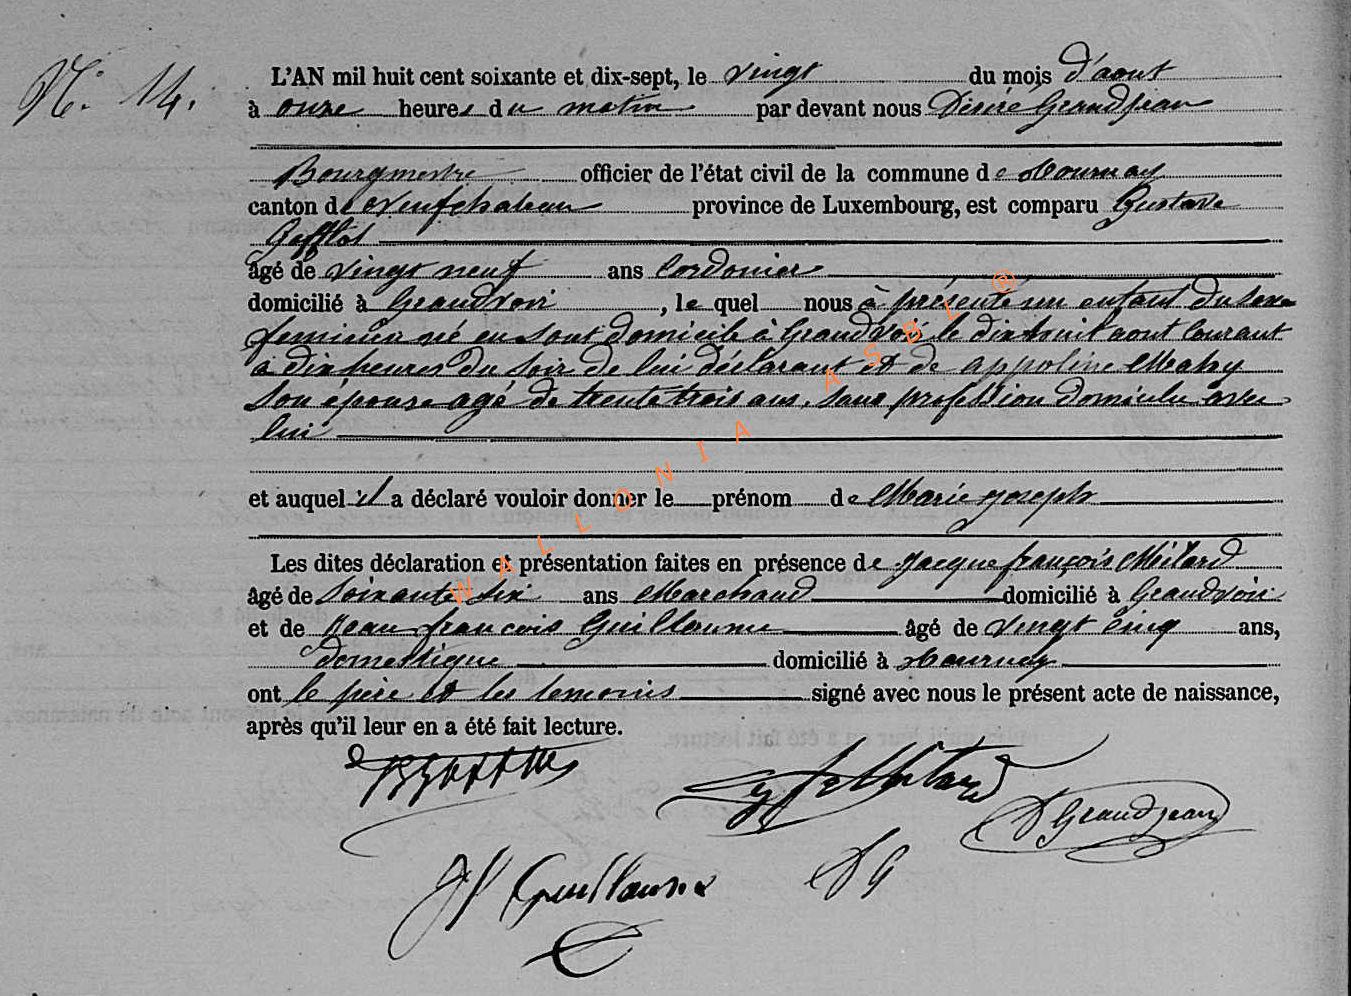 N° 14.
L'AN mil huit cent soixante et dix-sept, le vingt du mois d'aout
à onze heures du matin par devant nous Désiré Grandjean
Bourgmestre officier de l'état civil de la commune de Tournay
canton de Neufchateau province de Luxembourg, est comparu Gustave
Gofflot
âgé de vingt neuf ans Cordonier
domicilié à Grandvoir, le quel nous à présenté un enfant du sexe
feminin né en sont domicile à Grandvoir le dixhuit aout Courant
à dix heures du soir de lui déclarant et de appoline Mahy
son épouse agé de trente trois ans, sans profession domicilié avec
lui
et auquel il a déclaré vouloir donner le prénom de Marie joseph
Les dites déclaration et présentation faites en présence de jacque françois Milard
âgé de soixante six ans Marchand domicilié à Grandvoir
et de jean françois Guillaume âgé de vingt cinq ans,
domestique domicilié à Tournay
ont le père et les temoins signé avec nous le présent acte de naissance,
après qu'il leur en a été fait lecture.
D Grandjean
JF Guillaume DG
WALLONIA ASBL ®